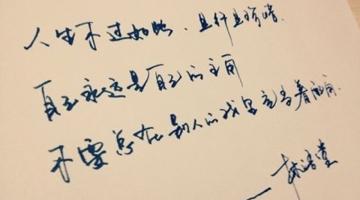 人生不过如此，且行且珍惜
自己永远是自己的主角
不要总在别人的戏里充当着配角
——林语堂